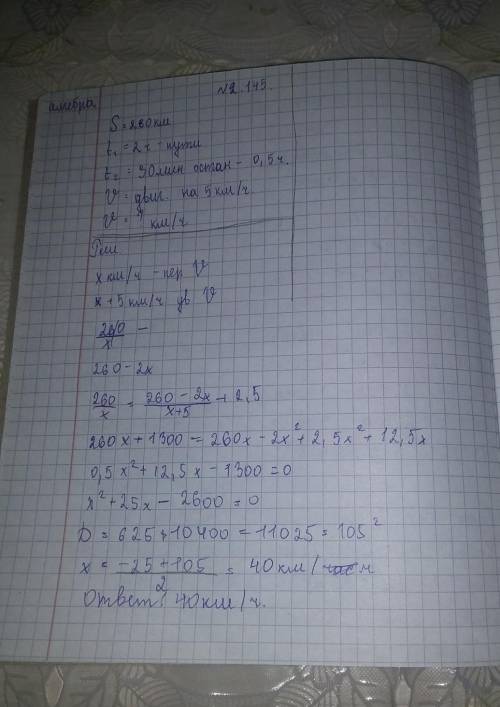 алгебра
№2.145.
S = 260 км
t₁ = 2ч - пути
t₂ = 30мин остан - 0,5ч.
V = двиг. на 5км/ч.
V = ? км/ч
Реш
x км/ч - пер V
x+5 км/ч дв V
260/x -
260-2x
260/x = 260-2x/x+5 + 2,5
260x + 1300 = 260x - 2x² + 2,5x² + 12,5x
0,5x² + 12,5x - 1300 = 0
x² + 25x - 2600 = 0
D = 625 + 10400 = 11025 = 105²
x = -25+105/2 = 40 км/ч
Ответ: 40км/ч.